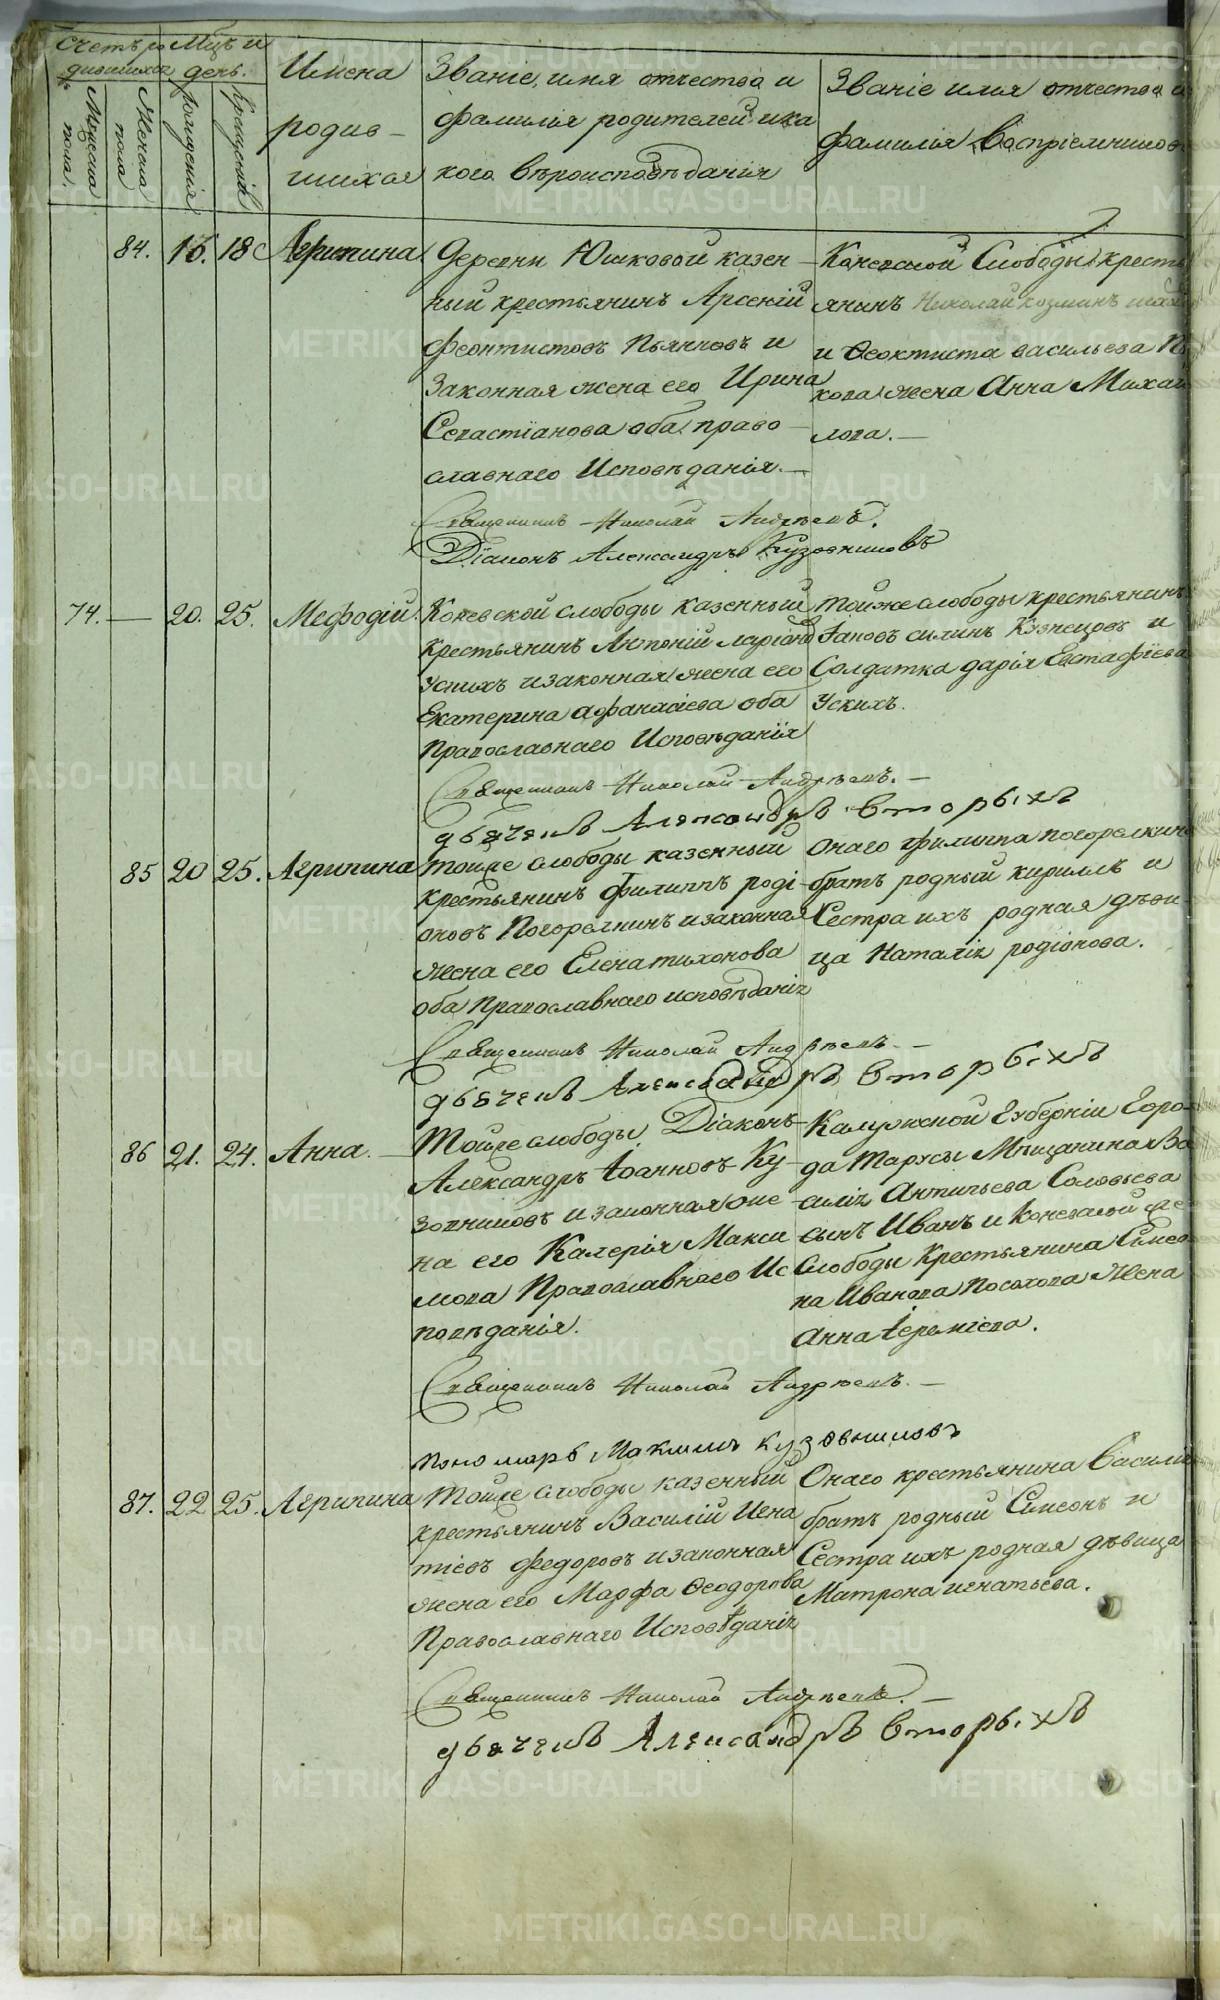 Счетъ ро Мцъ и
дившихся день.
Мужеска пола.
Женска пола
рожденія
Крещенія
Имена
родив-
шихся
Званіе, имя отчества и
фамилія родителей и ка
кого вѣроисповѣданія
Званіе имя отчества и
фамилія воспріемников
84. 16. 18 Агрипина
Деревни Юшковой казен-
ный крестьянинъ Арсеній
Феоктистовъ Пьянковъ и
Законная жена его Ирина
Севастіанова оба право-
славнаго Исповѣданія.-
Коневской Слободы кресть
янинъ Николай козминъ
и Феоктиста васильева
кова жена Анна Михай
лова.-
Священникъ Николай Андреевъ.
Діаконъ Александръ Кузовниковъ
74. - 20. 25. Мефодій.
Коневской слободы казенный
крестьянинъ Антоній ларіоновъ
Ускихъ и законная жена его
Екатерина афанасіева оба
Православнаго Исповѣданія
тойже слободы крестьянинъ
Іаковъ силинъ Кузнецовъ и
Солдатка дарія Евстафіева
Ускихъ.
Священникъ Николай Андреевъ.-
дьячекъ Александръ Вторыхъ
85 20 25. Агрипина
тойже слободы казенный
крестьянинъ Филиппъ роді-
оновъ Погорелкинъ и законная
жена его Елена тихонова
оба Православнаго исповѣданія
Онаго Филиппа погорелкина
братъ родный кириллъ и
Сестра ихъ родная дѣви
ца Наталія родіонова.
Священникъ Николай Андреевъ.-
дьячекъ Александръ Вторыхъ
86 21. 24. Анна.-
Тойже слободы Діаконъ
Александръ Іоанновъ Ку-
зовниковъ и законная же
на его Калерія Макси
мова Православнаго Ис
повѣданія.
Калужской Губерніи Горо-
да Тарусы Мѣщанина Ва
силія Антипьева Соловьева
сынъ Иванъ и Коневской же
Слободы Крестьянина Симео
на Иванова Посохова Жена
Анна Іереміева.
Священникъ Николай Андреевъ.-
пономарь Максимъ Кузовниковъ
87. 22 25. Агрипина
Тойже слободы казенный
крестьянинъ Василій Игна
тіевъ Федоровъ и законная
жена его Марфа Феодорова
Православнаго Исповѣданія
Онаго крестьянина Василія
братъ родный Симеонъ и
Сестра ихъ родная дѣвица
Матрона игнатьева.
Священникъ Николай Андреевъ.-
дьячекъ Александръ Вторыхъ
METRIKI.GASO-URAL.RU